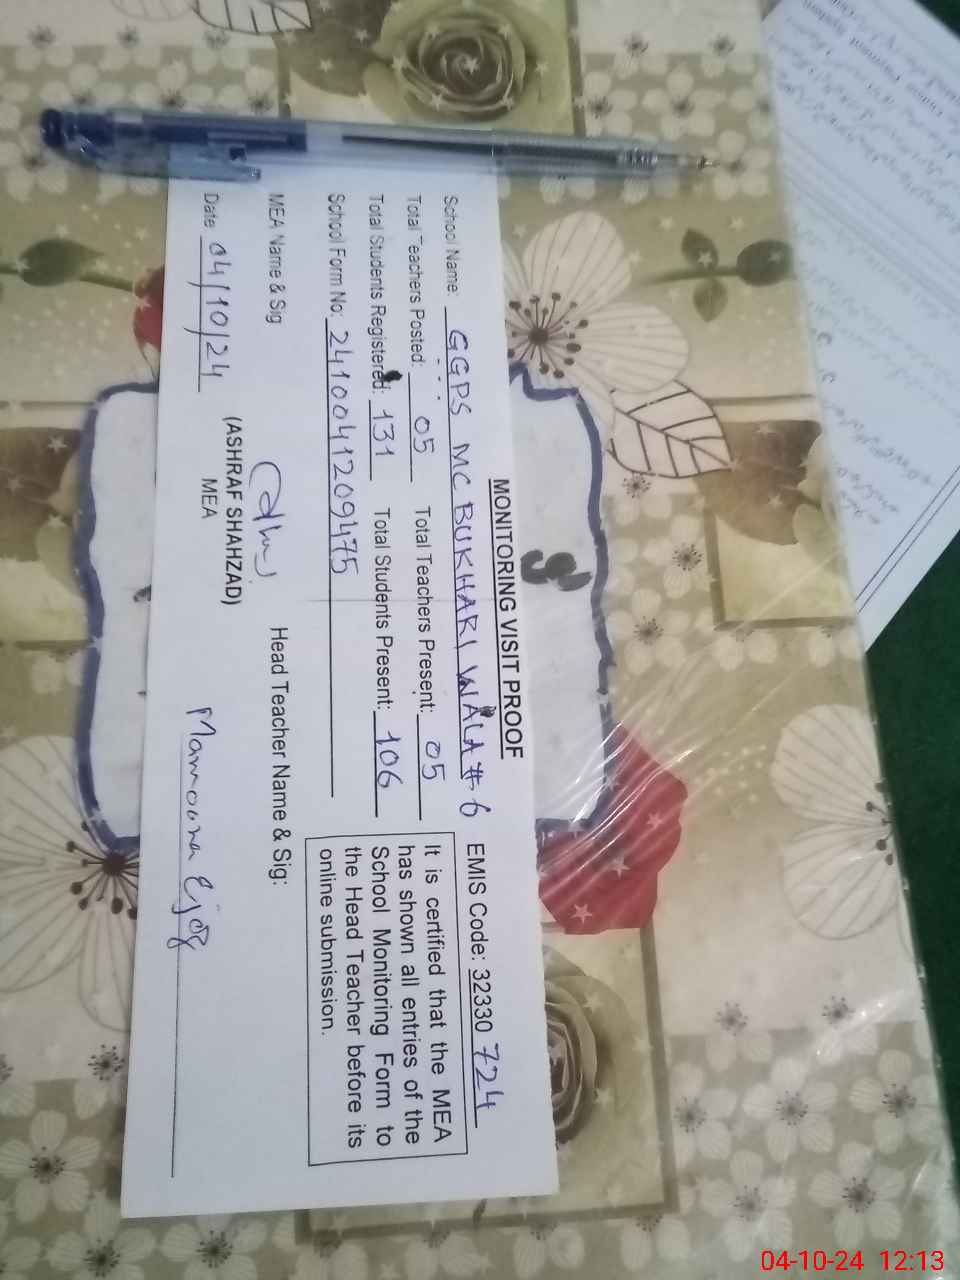 MONITORING VISIT PROOF
School Name: GGPS MC BUKHARI WALA # 6 EMIS Code: 32330 724
Total Teachers Posted: 05 Total Teachers Present: 05
Total Students Registered: 131 Total Students Present: 106
School Form No: 2410041209475
It is certified that the MEA
has shown all entries of the
School Monitoring Form to
the Head Teacher before its
online submission.
MEA Name & Sig Head Teacher Name & Sig:
(ASHRAF SHAHZAD)
MEA
Date 04/10/24 Mamoona Ejaz
04-10-24 12:13